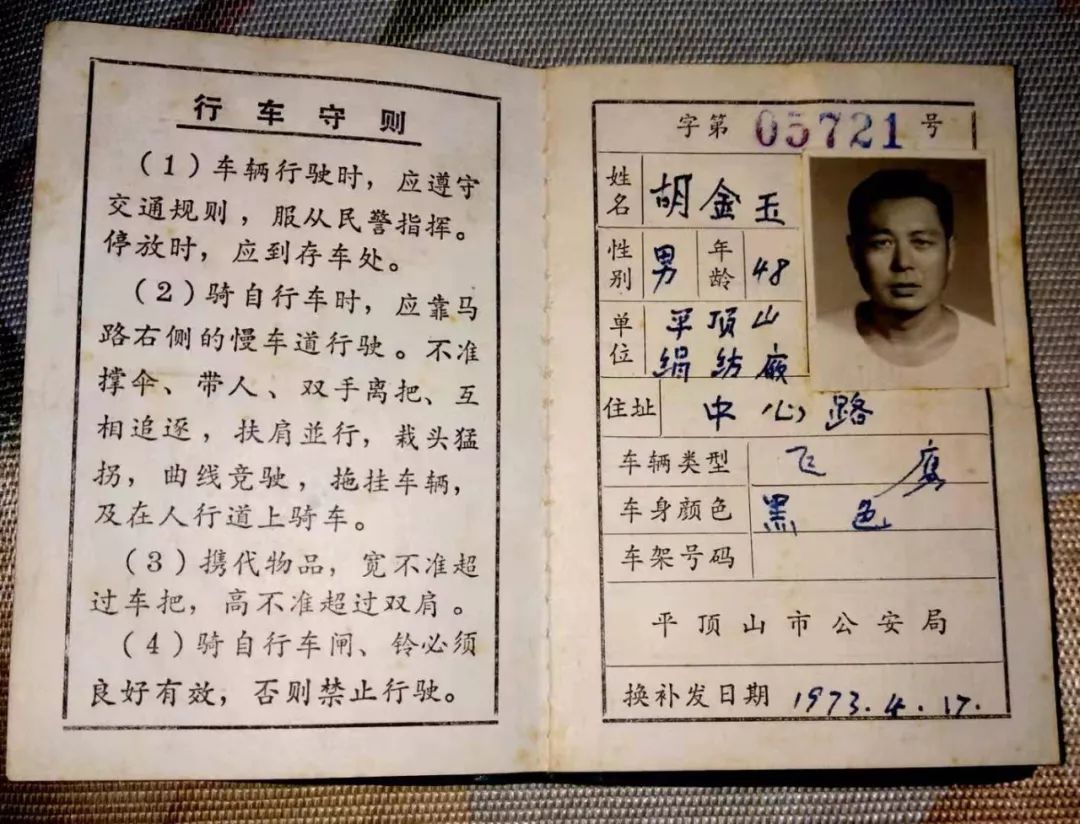 行车守则
（1）车辆行驶时，应遵守
交通规则，服从民警指挥。
停放时，应到存车处。
（2）骑自行车时，应靠马
路右侧的慢车道行驶。不准
撑伞、带人、双手离把、互
相追逐，扶肩並行，栽头猛
拐，曲线竞驶，拖挂车辆，
及在人行道上骑车。
（3）携代物品，宽不准超
过车把，高不准超过双肩。
（4）骑自行车闸、铃必须
良好有效，否则禁止行驶。
字第 05721 号
姓名 胡金玉
性别 男 年龄 48
单位 平顶山
绢纺厰
住址 中心路
车辆类型 飞鹰
车身颜色 黑色
车架号码
平顶山市公安局
换补发日期 1973.4.17.